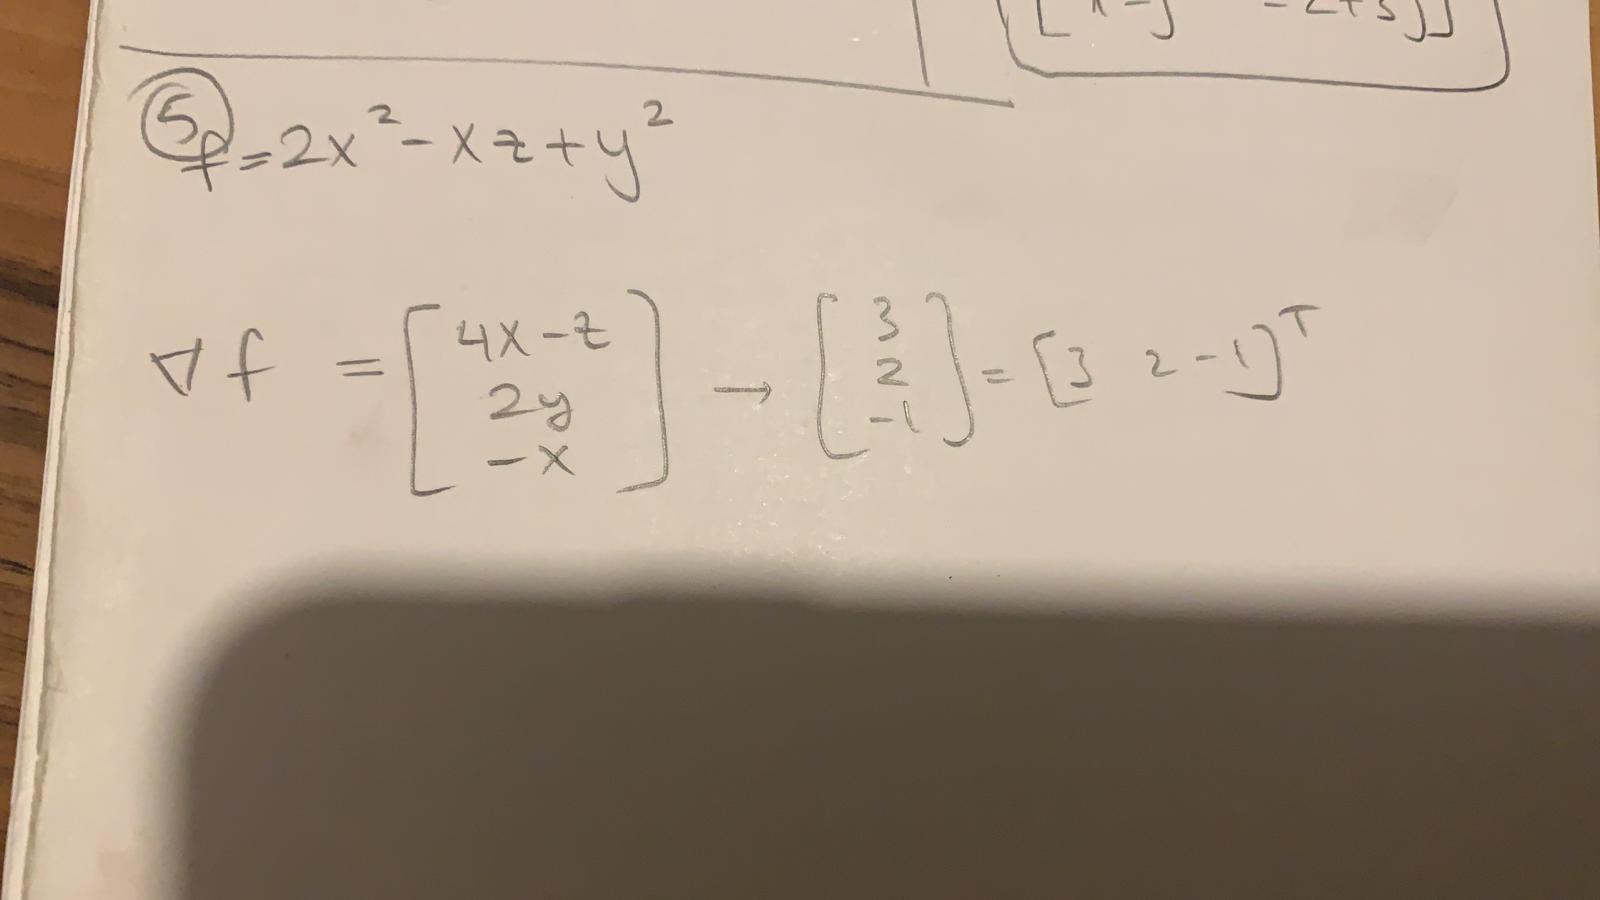 ⑤ f = 2x² - xz + y²
∇f = [4x-z 2y -x] → [3 2 -1] = [3 2 -1]ᵀ